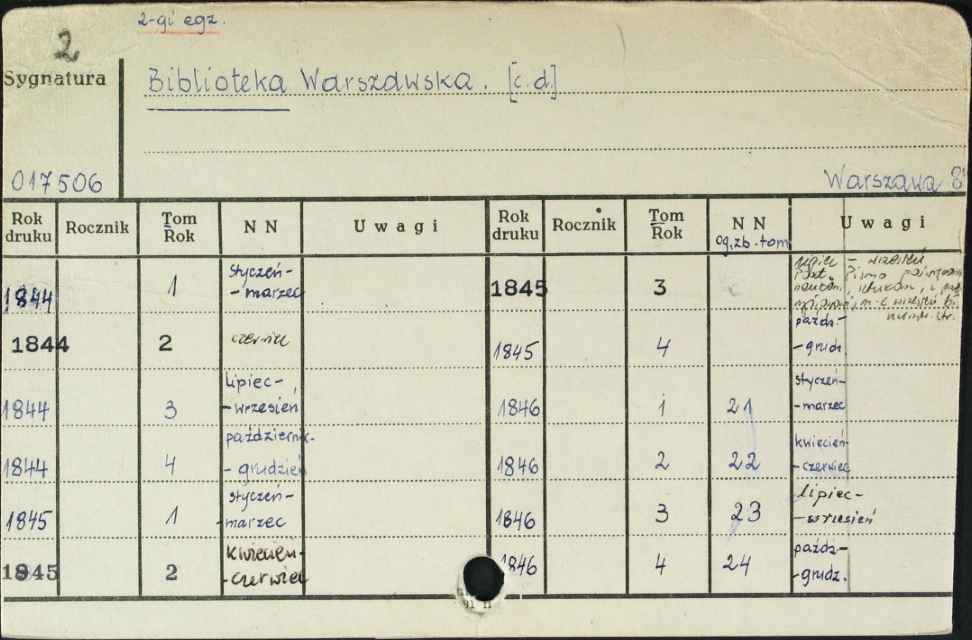 2-gi egz.
2
Sygnatura
Biblioteka Warszawska. [c.d.]
017506
Warszawa
Rok druku Rocznik Tom Rok NN Uwagi Rok druku Rocznik Tom Rok NN og.zb.tom Uwagi
1844 1 styczeń-
- marzec
1844 2 czerwiec
1844 3 lipiec-
- wrzesień
1844 4 październik-
- grudzień
1845 1 styczeń-
- marzec
1845 2 kwiecień-
- czerwiec
1845 3 lipiec - wrzesień
Pismo poświęcone
naukom, sztukom, i
1845 4 paźdz.-
- grudz.
1846 1 21 styczeń-
- marzec
1846 2 22 kwiecień-
- czerwiec
1846 3 23 lipiec-
- wrzesień
1846 4 24 paźdz-
- grudz.